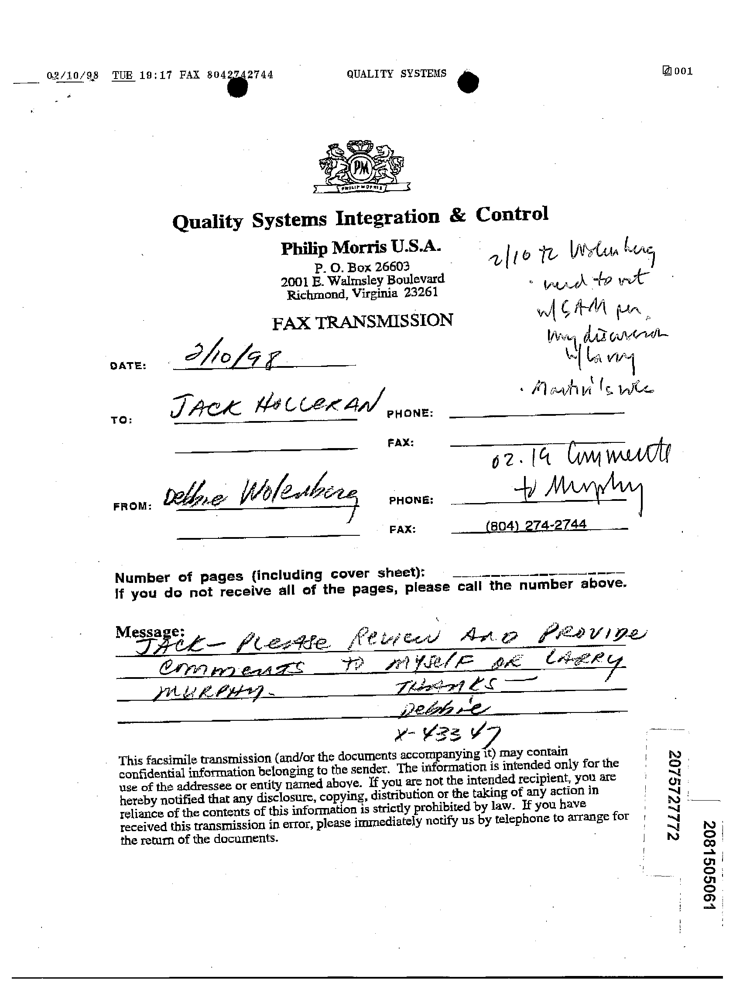 02/10/98 TUE 19:17 FAX 8042742744 QUALITY SYSTEMS 001
PM
PHILIP MORRIS
Quality Systems Integration & Control
Philip Morris U.S.A.
P. O. Box 26603
2001 E. Walmsley Boulevard
Richmond, Virginia 23261
FAX TRANSMISSION
2/10 to Wolenberg
· need to vet
w/ SAM per
my discussion
w/ Larry
DATE: 2/10/98
TO: JACK HOLLERAN PHONE:
FAX:
02.19 Comments
to Murphy
FROM: Debbie Wolenberg PHONE:
FAX: (804) 274-2744
Number of pages (including cover sheet):
If you do not receive all of the pages, please call the number above.
Message:
JACK - PLEASE Review AND PROVIDE
Comments TO MYSELF OR LARRY
MURPHY. THANKS -
Debbie
X-43347
This facsimile transmission (and/or the documents accompanying it) may contain
confidential information belonging to the sender. The information is intended only for the
use of the addressee or entity named above. If you are not the intended recipient, you are
hereby notified that any disclosure, copying, distribution or the taking of any action in
reliance of the contents of this information is strictly prohibited by law. If you have
received this transmission in error, please immediately notify us by telephone to arrange for
the return of the documents.
2075727772
2081505061